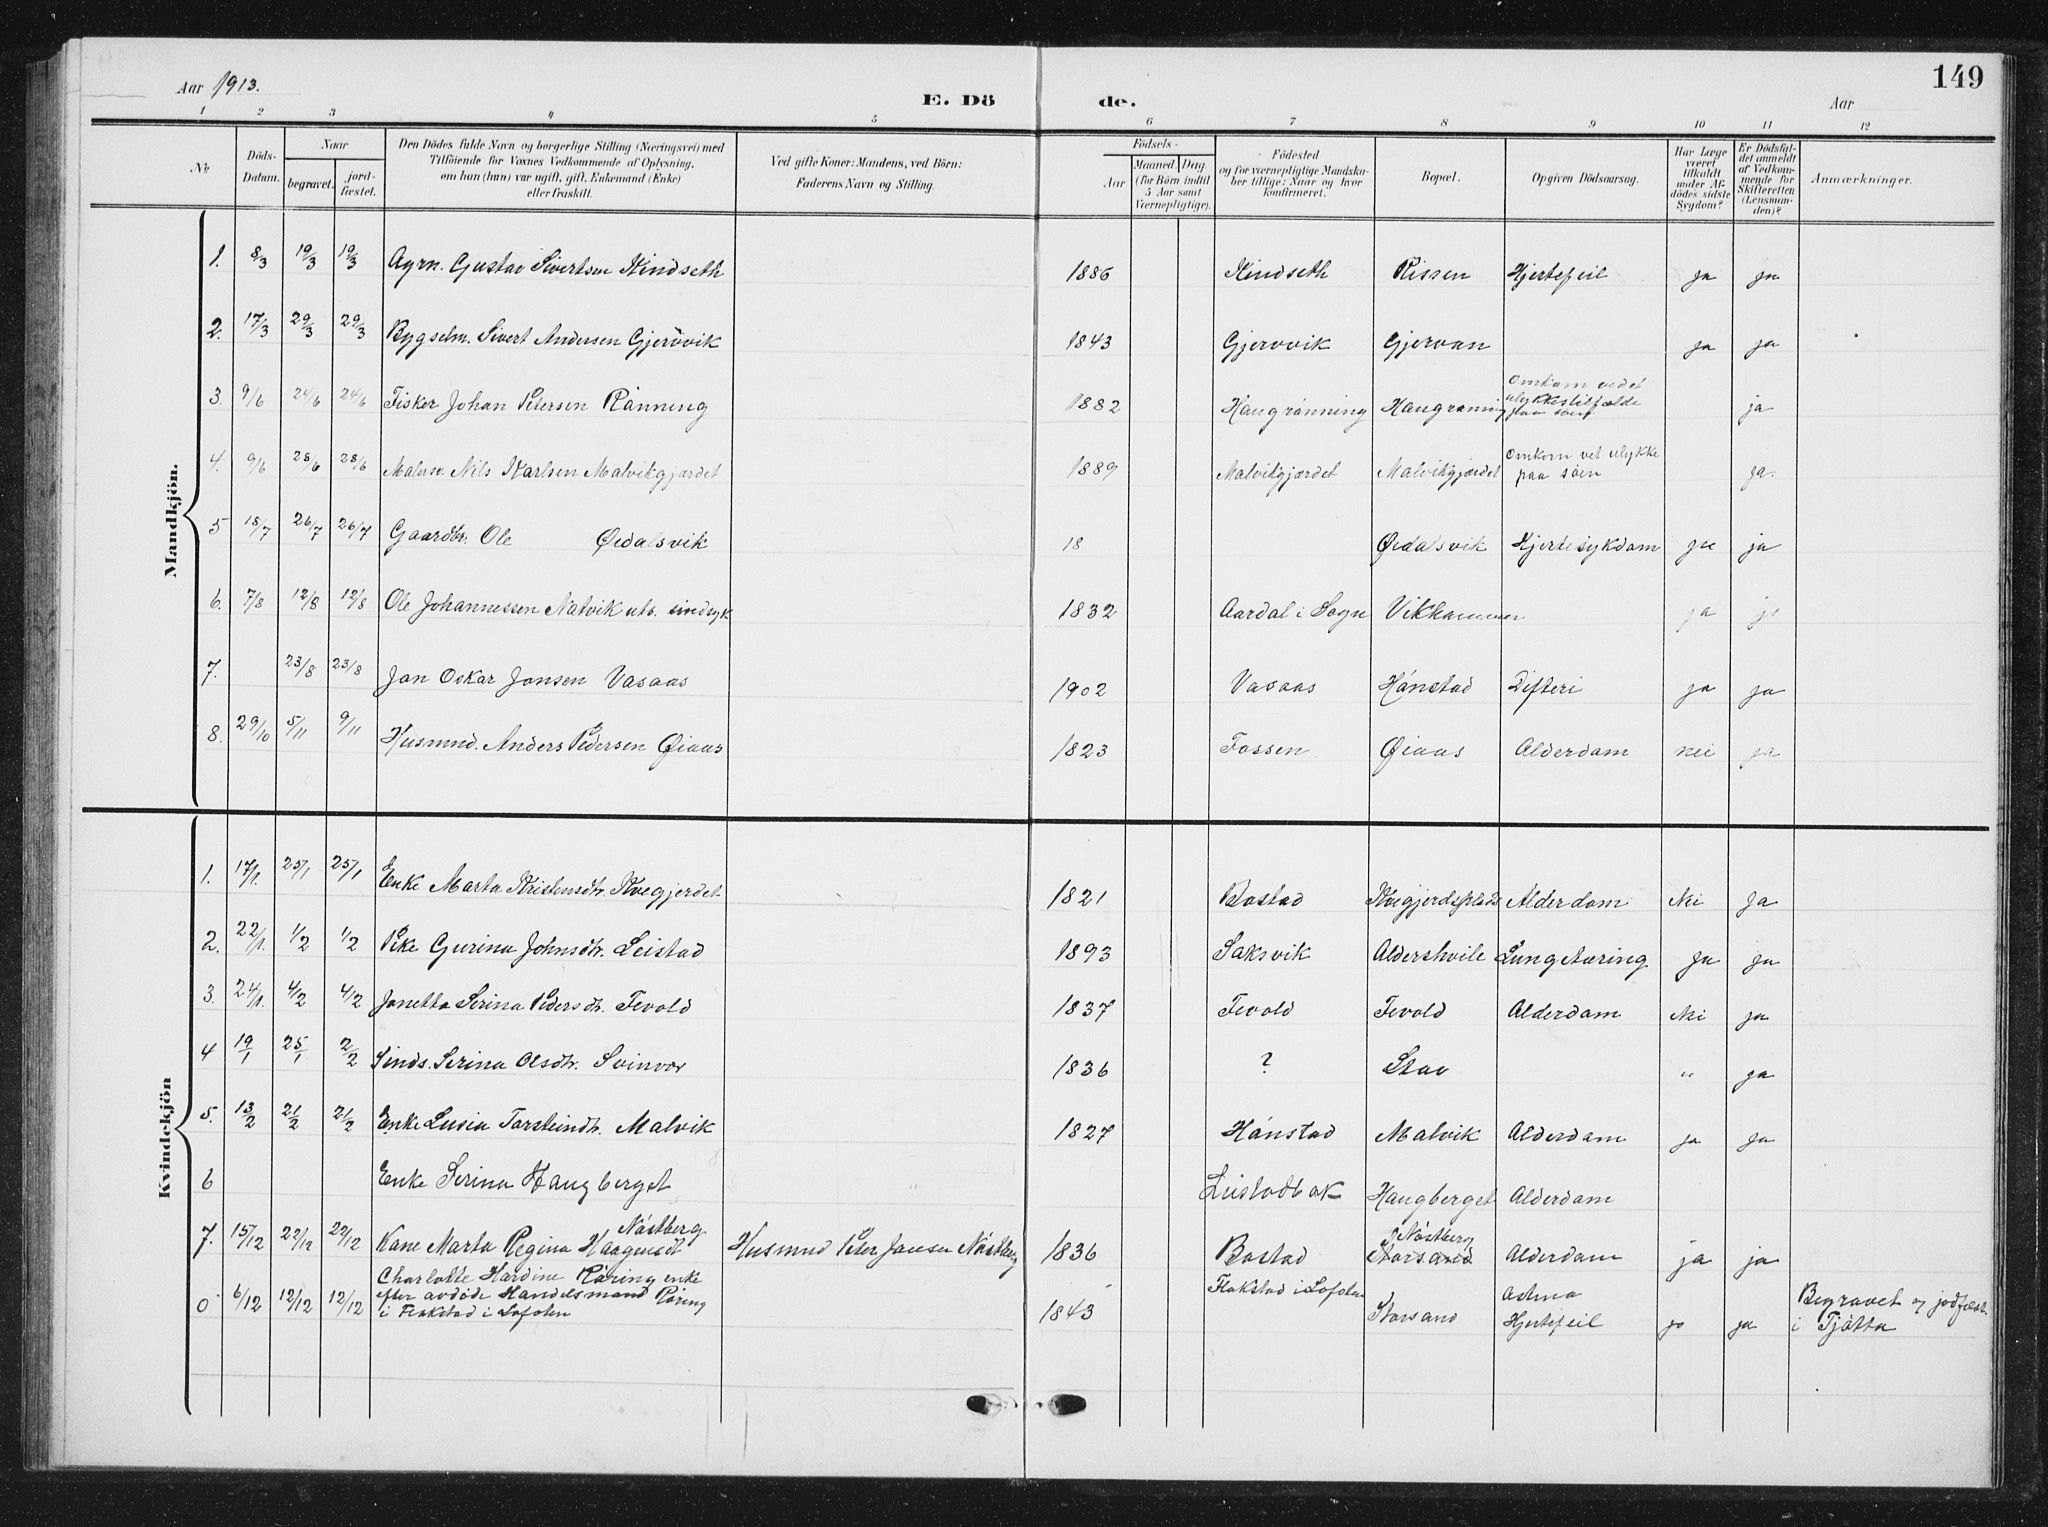 Aar 1913.
E. Dö de.
Aar
149
1 2 3 4 5 6 7 8 9 10 11 12
No
Döds-Datum.
Naar
begravet.
jord-fæstet.
Den Dödes fulde Navn og borgerlige Stilling (Næringsvei) med
Tilföiende for Voxnes Vedkommende af Oplysning,
om han (hun) var ugift, gift, Enkemand (Enke)
eller fraskilt.
Ved gifte Koner: Mandens, ved Börn:
Faderens Navn og Stilling.
Födsels-
Aar
Maaned. Dag.
(for Börn indtil
5 Aar samt
Værnepligtige).
Födested
og for værnepligtige Mandska-
ber tillige: Naar og hvor
konfirmeret.
Bopæl.
Opgiven Dödsaarsag.
Har Læge
været
tilkaldt
under Af-
dödes sidste
Sygdom?
Er Dödsfal-
det anmeldt
af Vedkom-
mende for
Skifteretten
(Lensman-
den)?
Anmærkninger.
Mandkjön.
1. 8/3 19/3 19/3 Agrn. Gustav Sivertsen Kindseth 1886 Kindseth Rissen Hjertefeil ja ja
2. 17/3 29/3 29/3 Bygselm. Sivert Andersen Gjervvik 1843 Gjervvik Gjervan ja ja
3. 9/6 24/6 24/6 Fisker Johan Petersen Rånning 1882 Haugrånning Haugrånning Omkom vedet
ulykkestilfælde
paa söen ja
4. 9/6 28/6 28/6 Malersv. Nils Karlsen Malvikgjærdet 1889 Malvikgjærdet Malvikgjærdet Omkom vet ulykke
paa söen ja.
5 18/7 26/7 26/7 Gaardbr. Ole Øidalsvik 18 Øidalsvik Hjertesykdam ja ja
6. 7/8 12/8 12/8 Ole Johannessen Natvik uts. sindsyk 1832 Aardal i Sogn Vikhammer ja ja
7. 23/8 23/8 Jon Oskar Jonsen Vasaas 1902 Vasaas Hånstad Difteri ja ja
8. 29/10 5/11 9/11 Husmnd. Anders Pedersen Øiaas 1823 Fossen Øiaas Alderdam nei ja
Kvindekjön
1. 17/1. 25/1 25/1 Enke Marta Kristensdtr. Kvegjerdet 1821 Bostad Kvegjerdsplads Alderdom Nei Ja
2. 22/1. 1/2 1/2 Pike Gurina Johnsdtr. Leistad 1893 Saksvik Aldershvile Lungetæring Ja ja
3. 24/1. 4/2 4/2 Jonetta Serina Pedersdtr. Fevold 1837 Fevold Fevold Alderdam Nei ja
4 19/1 25/1 2/2 Sinds. Serina Olsdtr. Svinvær 1836 ? Stav " ja
5. 13/2 21/2 21/2 Enke Lusia Torsteindtr. Malvik 1827 Hånstad Malvik Alderdam ja ja
6 Enke Serina Haugberget Leistadbak Haugberget Alderdam
7. 15/12 22/12 22/12 Kone Marta Regina Haagensdt Nåstberg Husmnd Peter Jansen Nåstberg 1836 Bostad Nåstberg
Storsand Alderdam ja ja
6/12 12/12 12/12 Charlotte Hardine Råring enke
efter avdöde Handelsmand Råring
i Flakstad i Lofoten 1843 Flakstad i Lofoten Storsand Astma
Hjertefeil ja ja Begravet og jodfæst
i Tjåtta